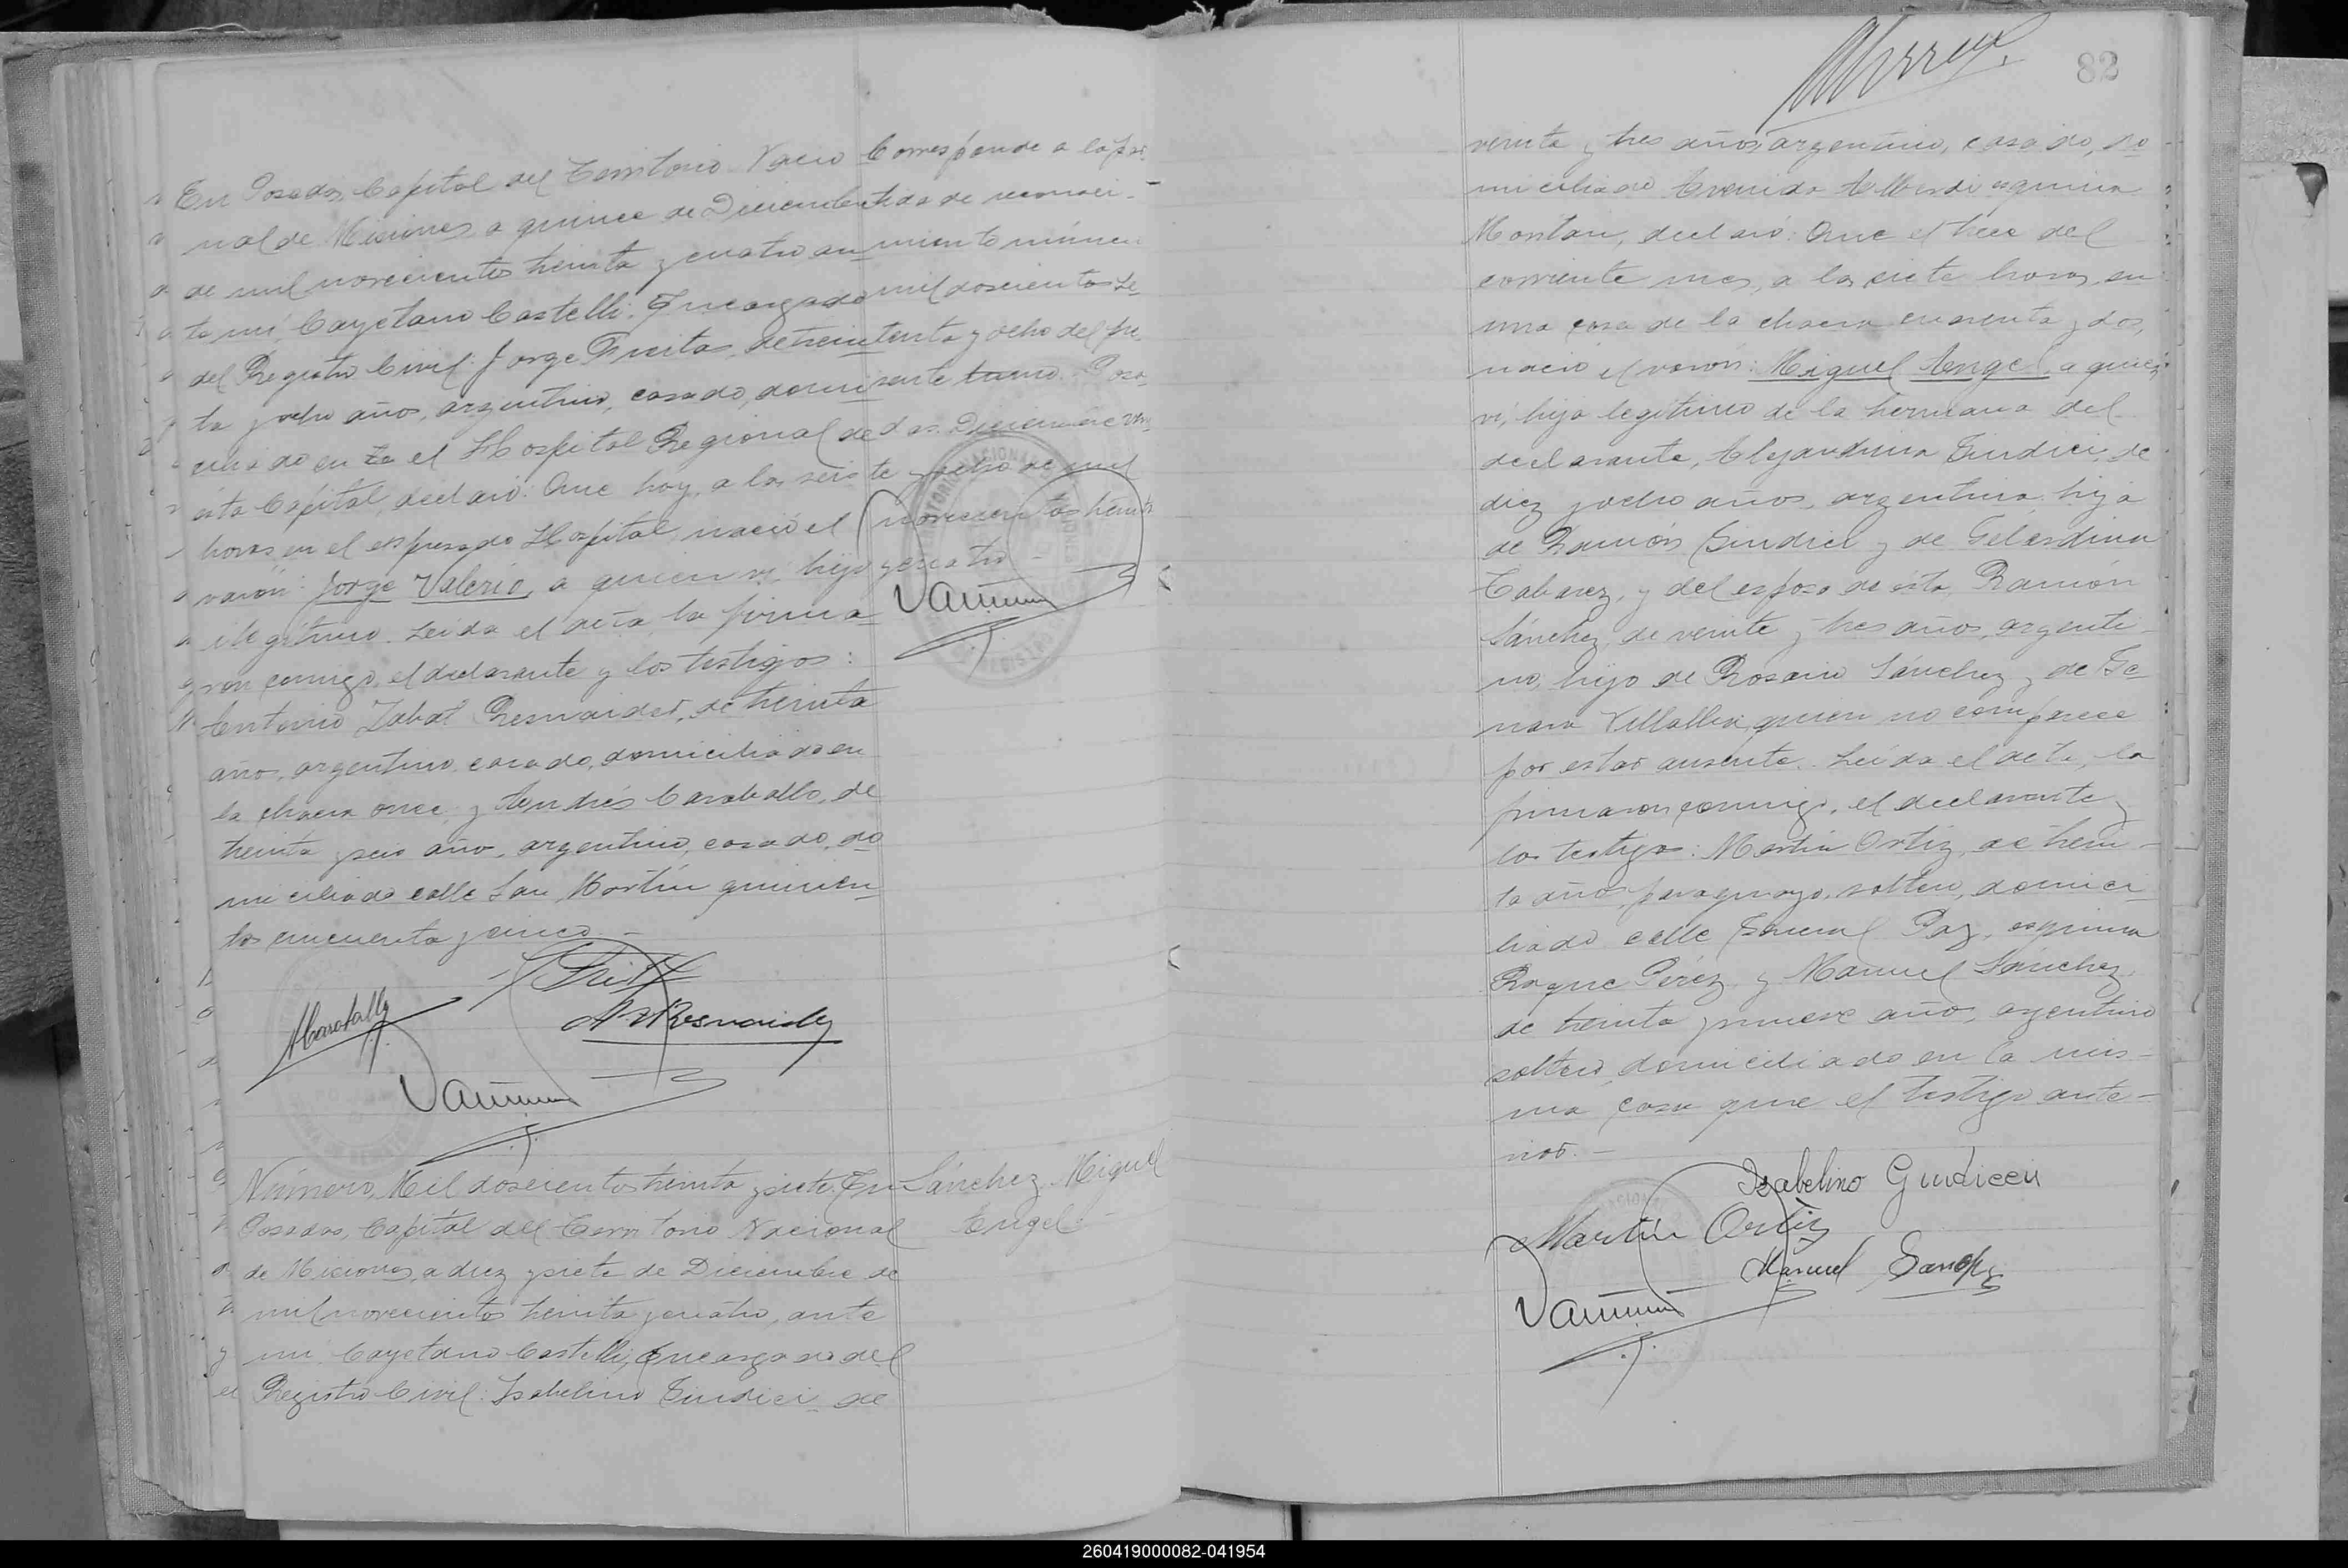 En Posadas, Capital del Territorio Nacio
nal de Misiones, a quince de Diciembre
de mil novecientos treinta y cuatro, an
te mí, Cayetano Castelli, Encargado
del Registro Civil: Jorge Freitas, de trein
ta y ocho años, argentino, casado, domi
ciliado en el Hospital Regional de
ésta Capital, declaró: Que hoy, a las seis
horas en el expresado Hospital, nació el
varón: Jorge Valerio, a quien vi, hijo
ilegítimo. Leída el acta, la firma
ron conmigo, el declarante y los testigos:
Antonio Resnaider, de treinta
años, argentino, casado, domiciliado en
la chacra once y Andrés Caraballo, de
treinta y seis años, argentino, casado, do
miciliado calle San Martín quinien
tos cincuenta y cinco.-
Corresponde a la par
tida de reconoci-
miento número
mil doscientos se
tenta y ocho del pre
sente tomo. Posa
das, Diciembre vein
te y ocho de mil
novecientos treinta
y cuatro.-
Número Mil doscientos treinta y siete. En
Posadas, Capital del Territorio Nacional
de Misiones, a diez y siete de Diciembre de
mil novecientos treinta y cuatro, ante
mí, Cayetano Castelli, Encargado del
Registro Civil: Isabelino Giudici, de
Sánchez, Miguel
Angel.-
82
veinte y tres años, argentino, casado, do
miciliado Avenida Alberdi esquina
declaró: Que el trece del
corriente mes, a las siete horas, en
una casa de la chacra cuarenta y dos,
nació el varón: Miguel Angel, a quien
vi, hijo legítimo de la hermana del
declarante, Alejandrina Giudici, de
diez y ocho años, argentina, hija
de Ramón Giudici y de
Tabarez, y del esposo de ésta, Ramón
Sánchez, de veinte y tres años, argenti
no, hijo de Rosario Sánchez y de Ge
nara Villalba, quien no comparece
por estar ausente. Leída el acta, la
firmaron conmigo, el declarante y
los testigos: Martín Ortiz, de trein-
ta años, paraguayo, soltero, domici
liado calle General Paz, esquina
Roque Pérez, y Manuel Sánchez,
de treinta y nueve años, argentino
soltero, domiciliado en la mis-
ma casa que el testigo ante-
rior.-
Isabelino Giudicci
Martín Ortiz
Manuel Sanchez
260419000082-041954